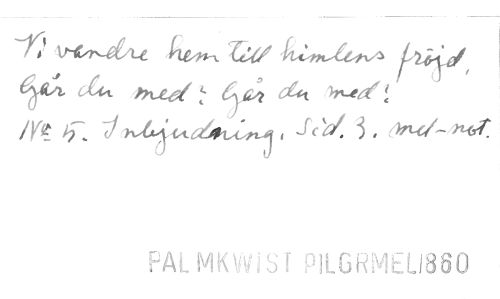 Vi vandre hem till himlens fröjd,
Går du med? Går du med?
No 5. Inbjudning. Sid. 3. mel-not.
PALMKWIST PILGRMEL1860